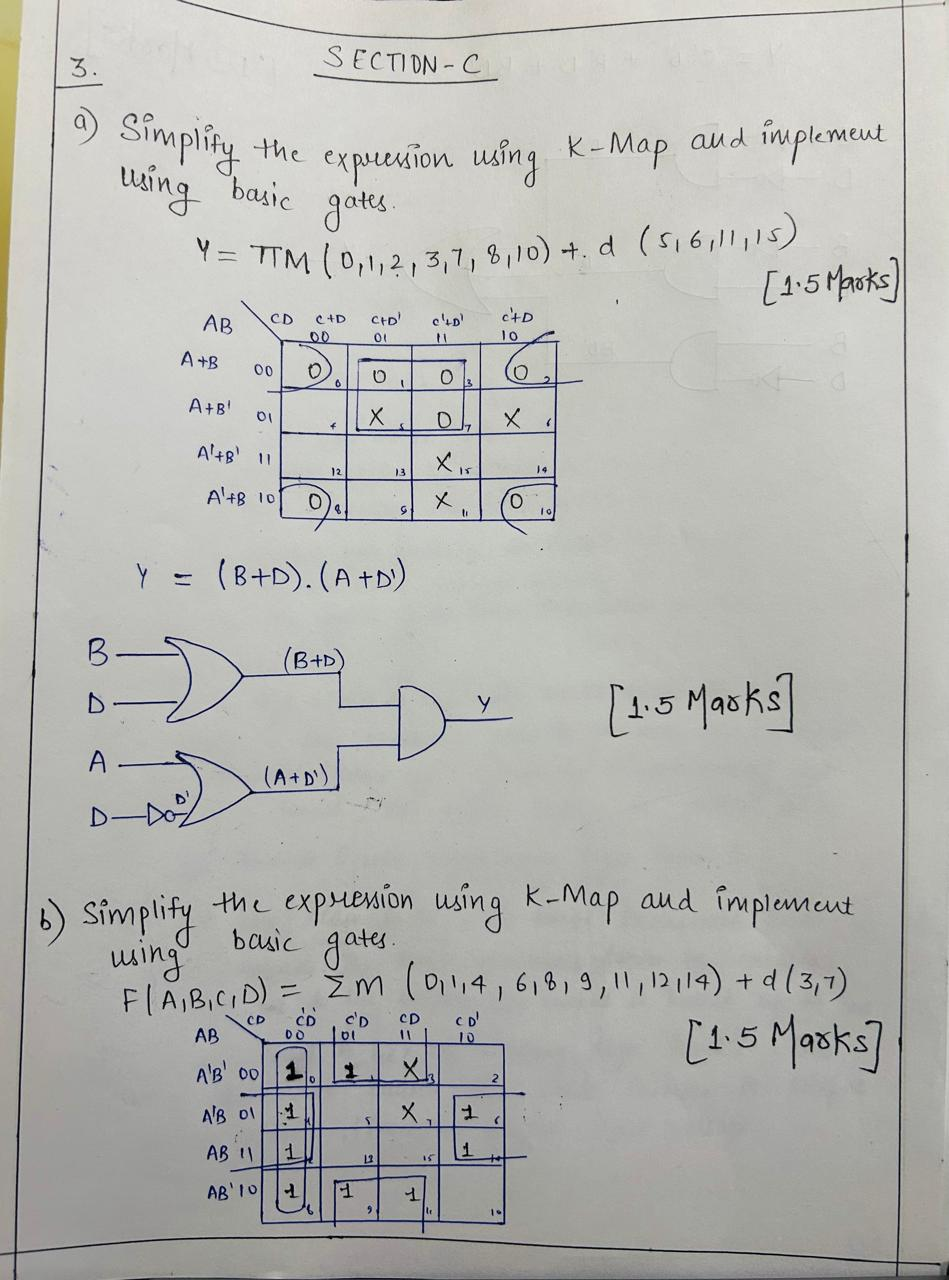 SECTION-C
3.
a) Simplify the expression using K-Map and implement
using basic gates.
Y = πM (0,1,2,3,7,8,10) + d (5,6,11,15)
[1.5 Marks]
AB CD C+D C+D' C'+D' C'+D
00 01 11 10
A+B 00 0 0 0 1 0 3 0 2
A+B' 01 4 X 5 0 7 X 6
A'+B' 11 12 13 X 15 14
A'+B 10 0 8 9 X 11 0 10
Y = (B+D).(A+D')
B (B+D)
D Y [1.5 Marks]
A (A+D')
D D'
b) Simplify the expression using K-Map and implement
using basic gates.
F(A,B,C,D) = Σm (0,1,4,6,8,9,11,12,14) + d(3,7)
[1.5 Marks]
AB CD C'D' C'D CD CD'
00 01 11 10
A'B' 00 1 0 1 1 X 3 2
A'B 01 1 4 5 X 7 1 6
AB 11 1 12 13 15 1 14
AB' 10 1 8 1 9 1 11 10